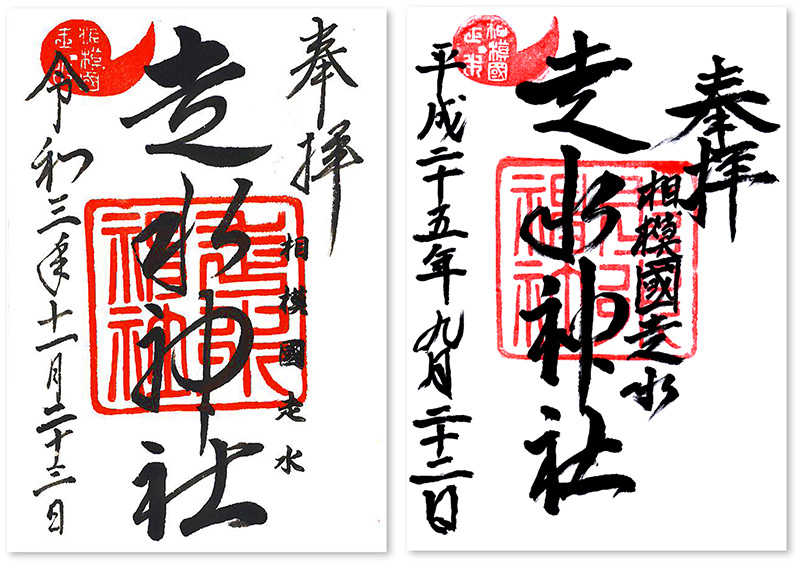 奉拝
相模國走水
走水神社
令和三年十一月二十三日
走水神社
奉拝
相模國走水
走水神社
平成二十五年九月二十二日